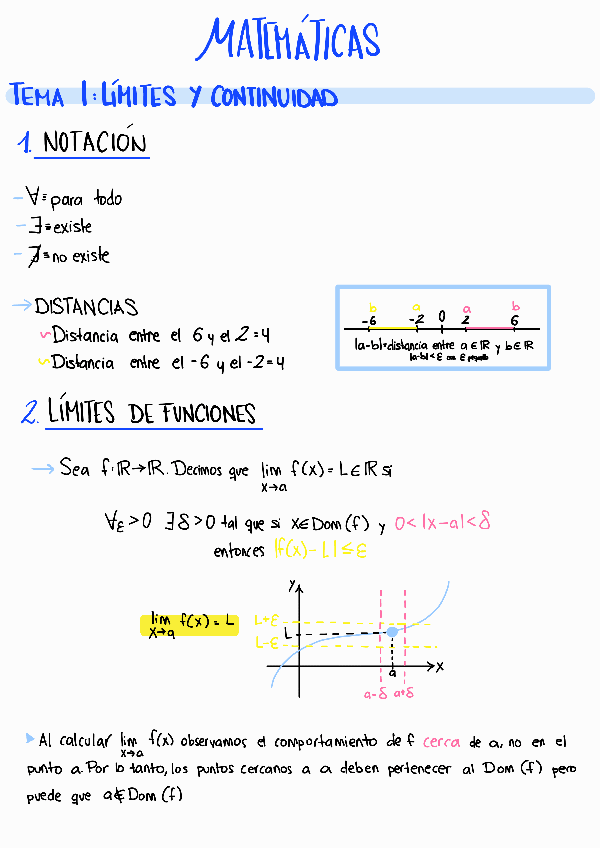 MATEMÁTICAS
TEMA 1: LÍMITES Y CONTINUIDAD
1. NOTACIÓN
- ∀ ≡ para todo
- ∃ ≡ existe
- ∄ ≡ no existe
→ DISTANCIAS
Distancia entre el 6 y el 2 = 4
Distancia entre el -6 y el -2 = 4
b a a b
-6 -2 0 2 6
|a-b| = distancia entre a ∈ ℝ y b ∈ ℝ
|a-b| < ε con ε pequeño
2. LÍMITES DE FUNCIONES
→ Sea f: ℝ → ℝ. Decimos que lim f(x) = L ∈ ℝ si
x→a
∀ε > 0 ∃ δ > 0 tal que si x ∈ Dom (f) y 0 < |x-a| < δ
entonces |f(x) - L| ≤ ε
lim f(x) = L
x→a
y
L+ε
L
L-ε
x
a
a-δ a+δ
▸ Al calcular lim f(x) observamos el comportamiento de f cerca de a, no en el
x→a
punto a. Por lo tanto, los puntos cercanos a a deben pertenecer al Dom (f) pero
puede que a ∉ Dom (f)